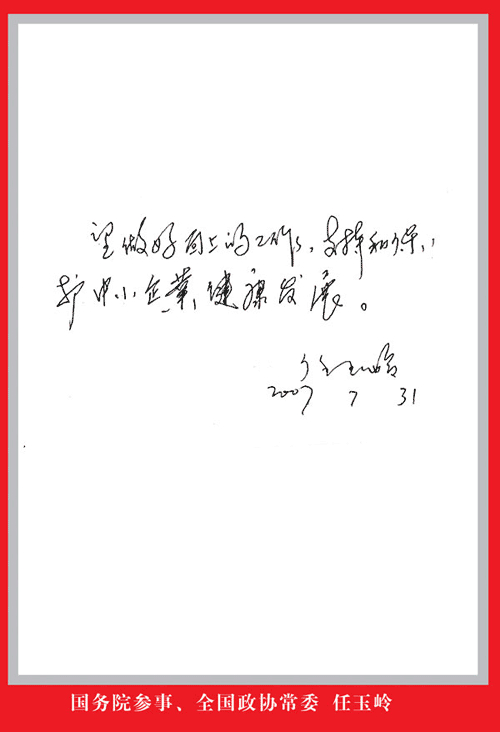 望做好上的工作，支持和保
护中小企業健康发展。
任玉岭
2007 7 31
国务院参事、全国政协常委 任玉岭